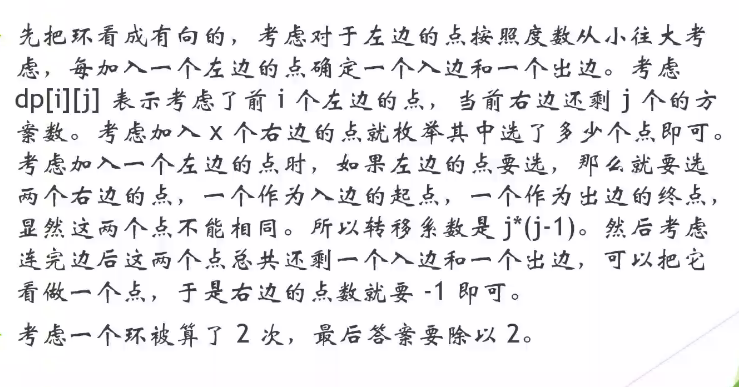 先把环看成有向的，考虑对于左边的点按照度数从小往大考
虑，每加入一个左边的点确定一个入边和一个出边。考虑
dp[i][j] 表示考虑了前 i 个左边的点，当前右边还剩 j 个的方
案数。考虑加入 x 个右边的点就枚举其中选了多少个点即可。
考虑加入一个左边的点时，如果左边的点要选，那么就要选
两个右边的点，一个作为入边的起点，一个作为出边的终点，
显然这两个点不能相同。所以转移系数是 j*(j-1)。然后考虑
连完边后这两个点总共还剩一个入边和一个出边，可以把它
看做一个点，于是右边的点数就要 -1 即可。
考虑一个环被算了 2 次，最后答案要除以 2。